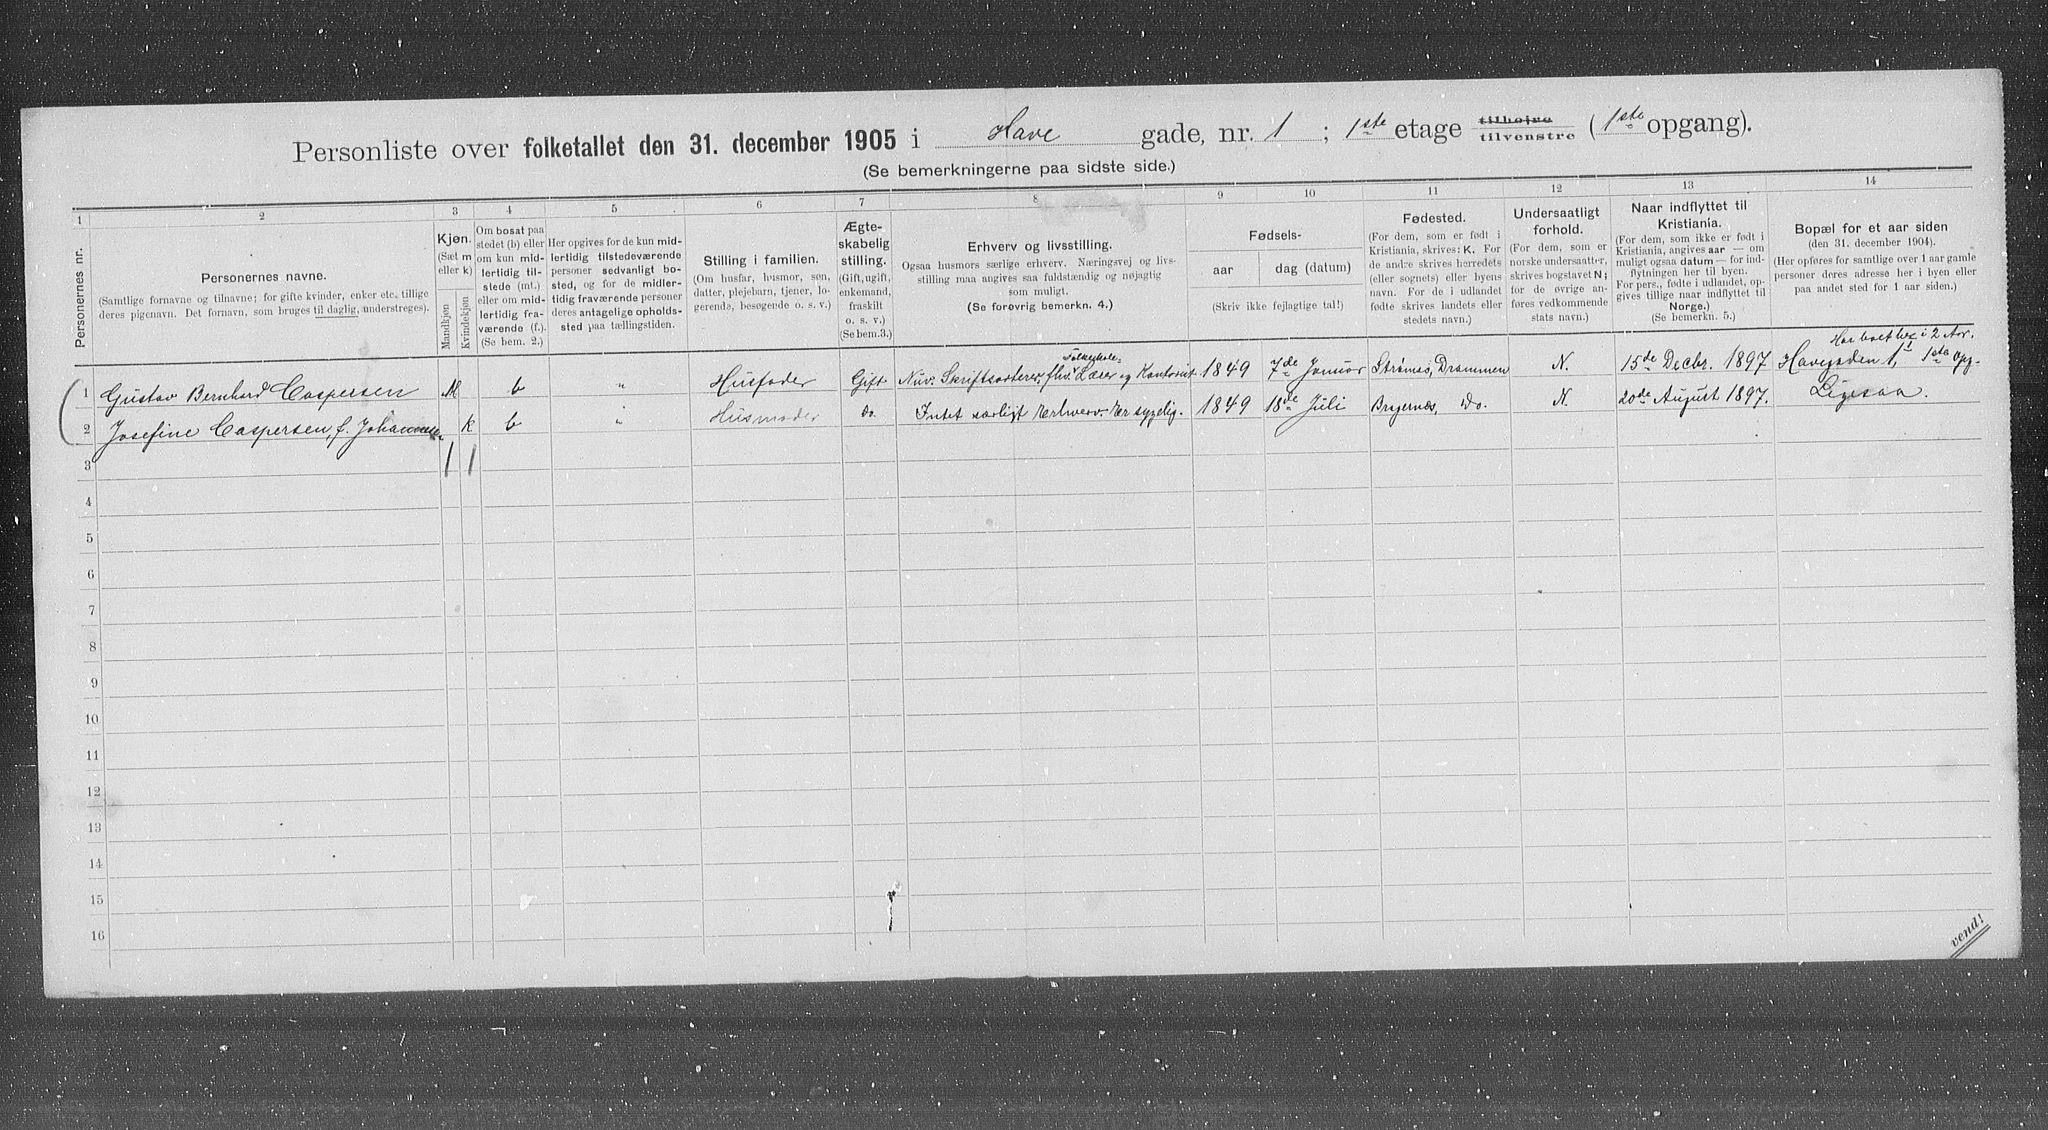 Personliste over folketallet den 31. december 1905 i Have gade, nr. 1 ; 1ste etage tilhøire tilvenstre (1ste opgang).
(Se bemerkningerne paa sidste side.)
1 2 3 4 5 6 7 8 9 10 11 12 13 14
Personernes nr.
Personernes navne.
(Samtlige fornavne og tilnavne; for gifte kvinder, enker etc. tillige
deres pigenavn. Det fornavn, som bruges til daglig, understreges).
Kjøn.
(Sæt m
eller k)
Mandkjøn
Kvindekjøn
Om bosat paa
stedet (b) eller
om kun mid-
lertidig til-
stede (mt.)
eller om mid-
lertidig fra-
værende (f.).
(Se bem. 2.)
Her opgives for de kun mid-
lertidig tilstedeværende
personer sedvanlig bo-
sted, og for de midler-
tidig fraværende personer
deres antagelige opholds-
sted paa tællingstiden.
Stilling i familien.
(Om husfar, husmor, søn,
datter, plejebarn, tjener, lo-
gerende, besøgende o. s. v.)
Ægte-
skabelig
stilling.
(Gift, ugift,
enkemand,
fraskilt
o. s. v.)
(Se bem.3.)
Erhverv og livsstilling.
Ogsaa husmors særlige erhverv. Næringsvej og livs-
stilling maa angives saa fuldstændig og nøjagtig
som muligt.
(Se forøvrig bemerkn. 4.)
Fødsels-
aar
dag (datum)
(Skriv ikke fejlagtige tal!)
Fødested.
(For dem, som er født i
Kristiania, skrives: K. For
de andre skrives herredets
(eller sognets) eller byens
navn. For de i udlandet
fødte skrives landets eller
stedets navn.)
Undersaatligt
forhold.
(For dem, som er
norske undersaatter,
skrives bogstavet N;
for de øvrige an-
føres vedkommende
stats navn.)
Naar indflyttet til
Kristiania.
(For dem, som ikke er født i
Kristiania, angives aar — om
muligt ogsaa datum — for ind-
flytningen her til byen.
For pers., fødte i udlandet, op-
gives tillige naar indflyttet til
Norge.)
(Se bemerkn. 5.)
Bopæl for et aar siden
(den 31. december 1904).
(Her opføres for samtlige over 1 aar gamle
personer deres adresse her i byen eller
paa andet sted for 1 aar siden.)
Har boet her i 2 Aar.
Folkeskole-
1 Gustav Bernhard Caspersen M b " Husfader Gift Nuv. Skriftsorterer, fhv. Lærer og Kontorist 1849 7de Januar Strømsø, Drammen N. 15de Decbr. 1897 Havegaden 1, 1ste Opg.
2 Josefine Caspersen, f. Johannesen k b " Husmoder do. Intet særligt Erhverv. Er sygelig. 1849 18de Juli Bragernes, do. N. 20de August 1897. Ligesaa.
3 1 1
4
5
6
7
8
9
10
11
12
13
14
15
16
vend!